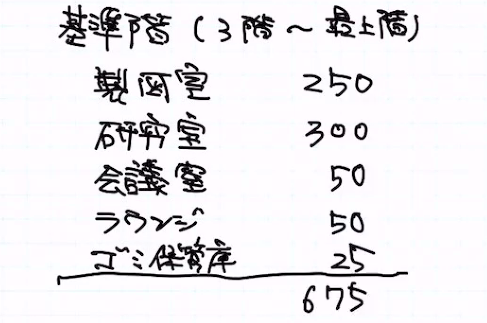 基準階(3階～最上階)
製図室 250
研究室 300
会議室 50
ラウンジ 50
ゴミ保管庫 25
675